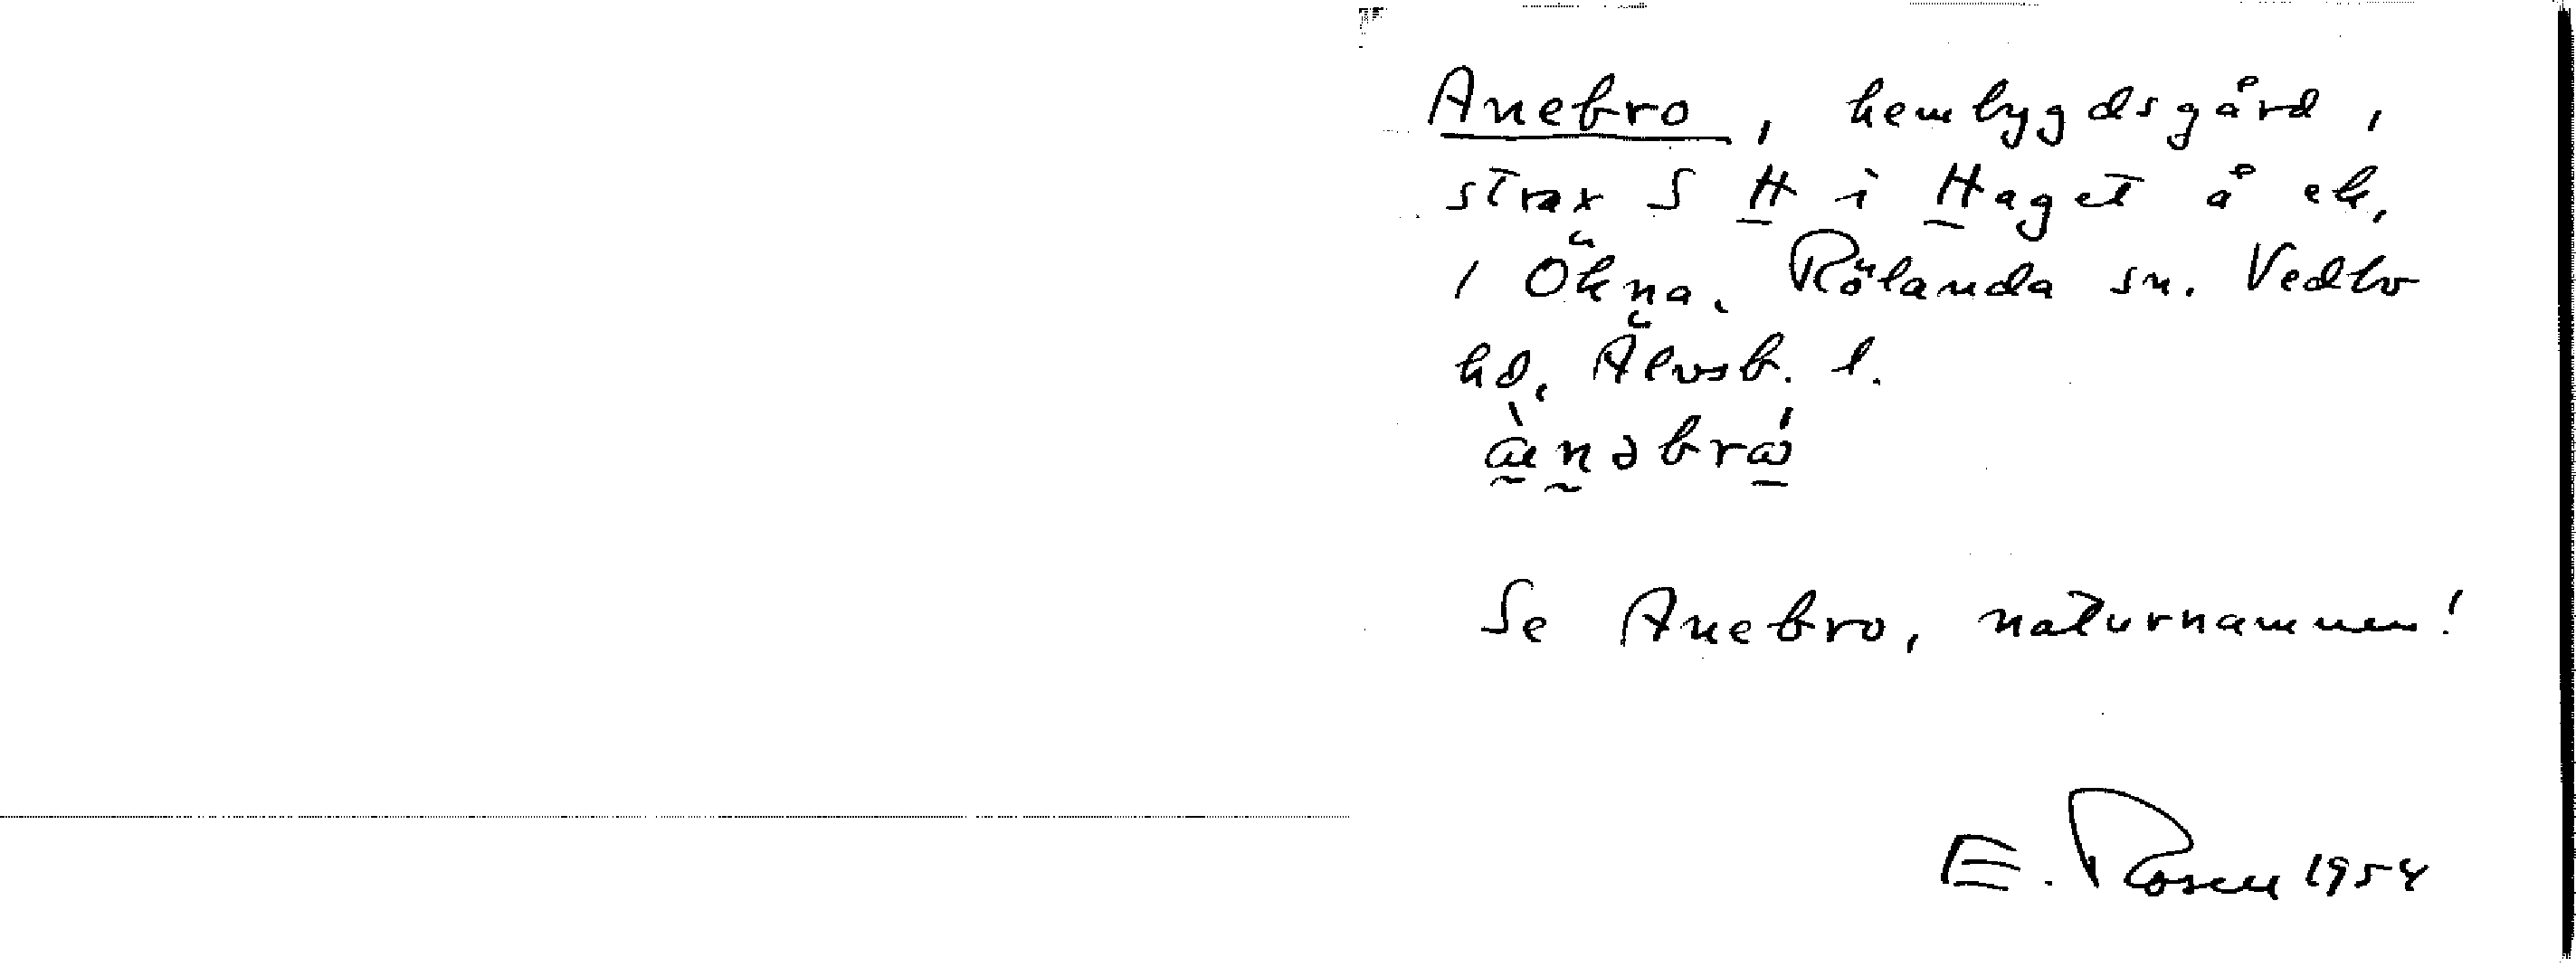 Anebro, hembygdsgård,
strax S H i Haget å ek.
1 Ökna. Rölanda sn. Vedbo
hd, Älvsb. l.
æ̀nəbrω̄́
Se Anebro, naturnamnen!
E. Rosen 1954